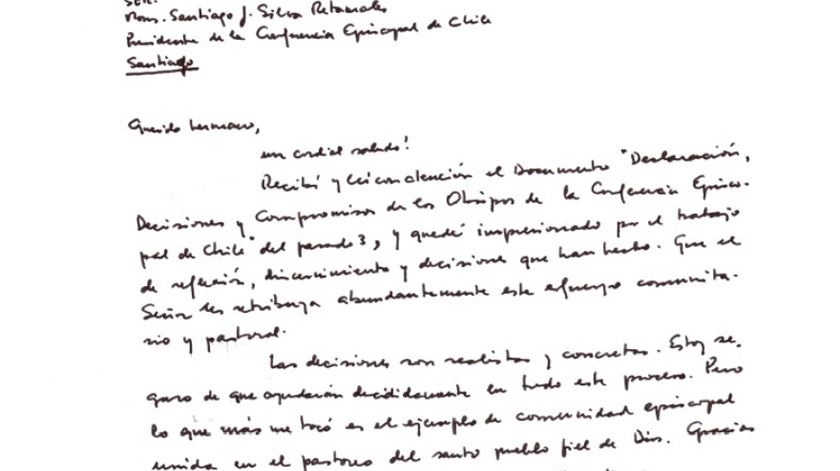 S.E.R.
Mons. Santiago J. Silva Retamales
Presidente de la Conferencia Episcopal de Chile
Santiago
Querido hermano,
un cordial saludo!
Recibí y leí con atención el Documento "Declaración,
Decisiones y Compromisos de los Obispos de la Conferencia Episco-
pal de Chile" del pasado 3, y quedé impresionado por el trabajo
de reflexión, discernimiento y decisiones que han hecho. Que el
Señor les retribuya abundantemente este esfuerzo comunita-
rio y pastoral.
Las decisiones son realistas y concretas. Estoy se-
guro de que ayudarán decididamente en todo este proceso. Pero
lo que más me tocó es el ejemplo de comunidad episcopal
unida en el pastoreo del santo pueblo fiel de Dios. Gracias